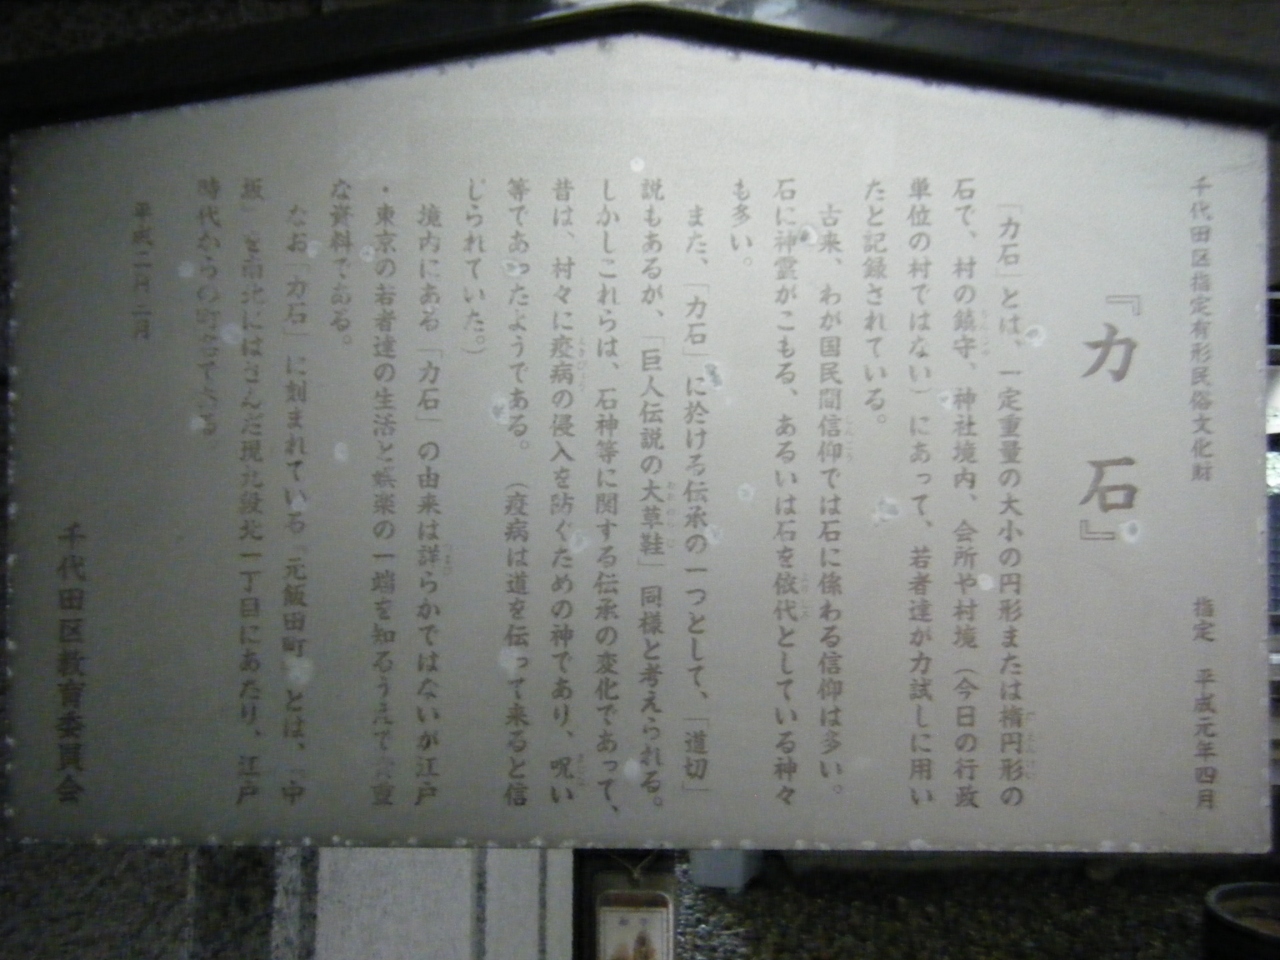 千代田区指定有形民俗文化財　指定　平成元年四月
『力石』
「力石」とは、一定重量の大小の円形または楕円形の
石で、村の鎮守、神社境内、会所や村境（今日の行政
単位の村ではない）にあって、若者達が力試しに用い
たと記録されている。
古来、わが国民間信仰では石に係わる信仰は多い。
石に神霊がこもる、あるいは石を依代としている神々
も多い。
また、「力石」に於ける伝承の一つとして、「道切」
説もあるが、「巨人伝説の大草鞋」同様と考えられる。
しかしこれらは、石神等に関する伝承の変化であって、
昔は、村々に疫病の侵入を防ぐための神であり、呪い
等であったようである。（疫病は道を伝って来ると信
じられていた。）
境内にある「力石」の由来は詳らかではないが江戸
・東京の若者達の生活と娯楽の一端を知るうえで貴重
な資料である。
なお「力石」に刻まれている『元飯田町』とは、『中
坂』を南北にはさんだ現九段北一丁目にあたり、江戸
時代からの町名である
平成二年二月
千代田区教育委員会